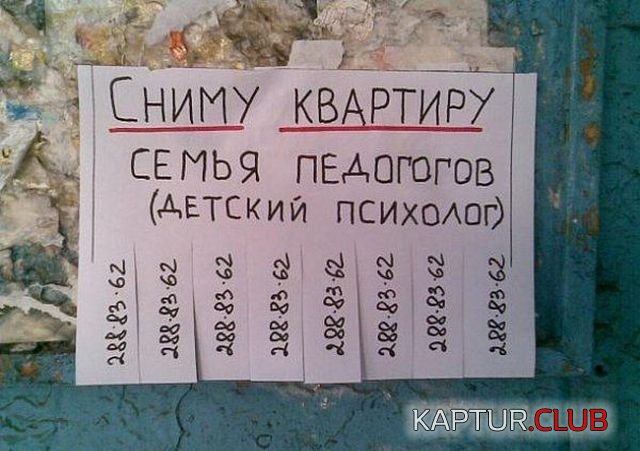 Сниму квартиру
семья педогогов
(детский психолог)
288-83-62
288-83-62
288-83-62
288-83-62
288-83-62
288-83-62
288-83-62
288-83-62
KAPTUR.CLUB